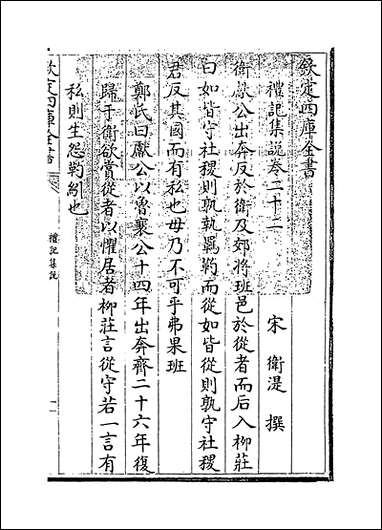 欽定四庫全書
禮記集說卷二十二
宋 衛湜 撰
衛獻公出奔反於衛及郊將班邑於從者而后入柳莊
曰如皆守社稷則孰執羈靮而從如皆從則孰守社稷
君反其國而有私也毋乃不可乎弗果班
鄭氏曰獻公以魯襄公十四年出奔齊二十六年復
歸于衛欲賞從者以懼居者柳莊言從守若一言有
私則生怨靮紖也
欽定四庫全書
禮記集說